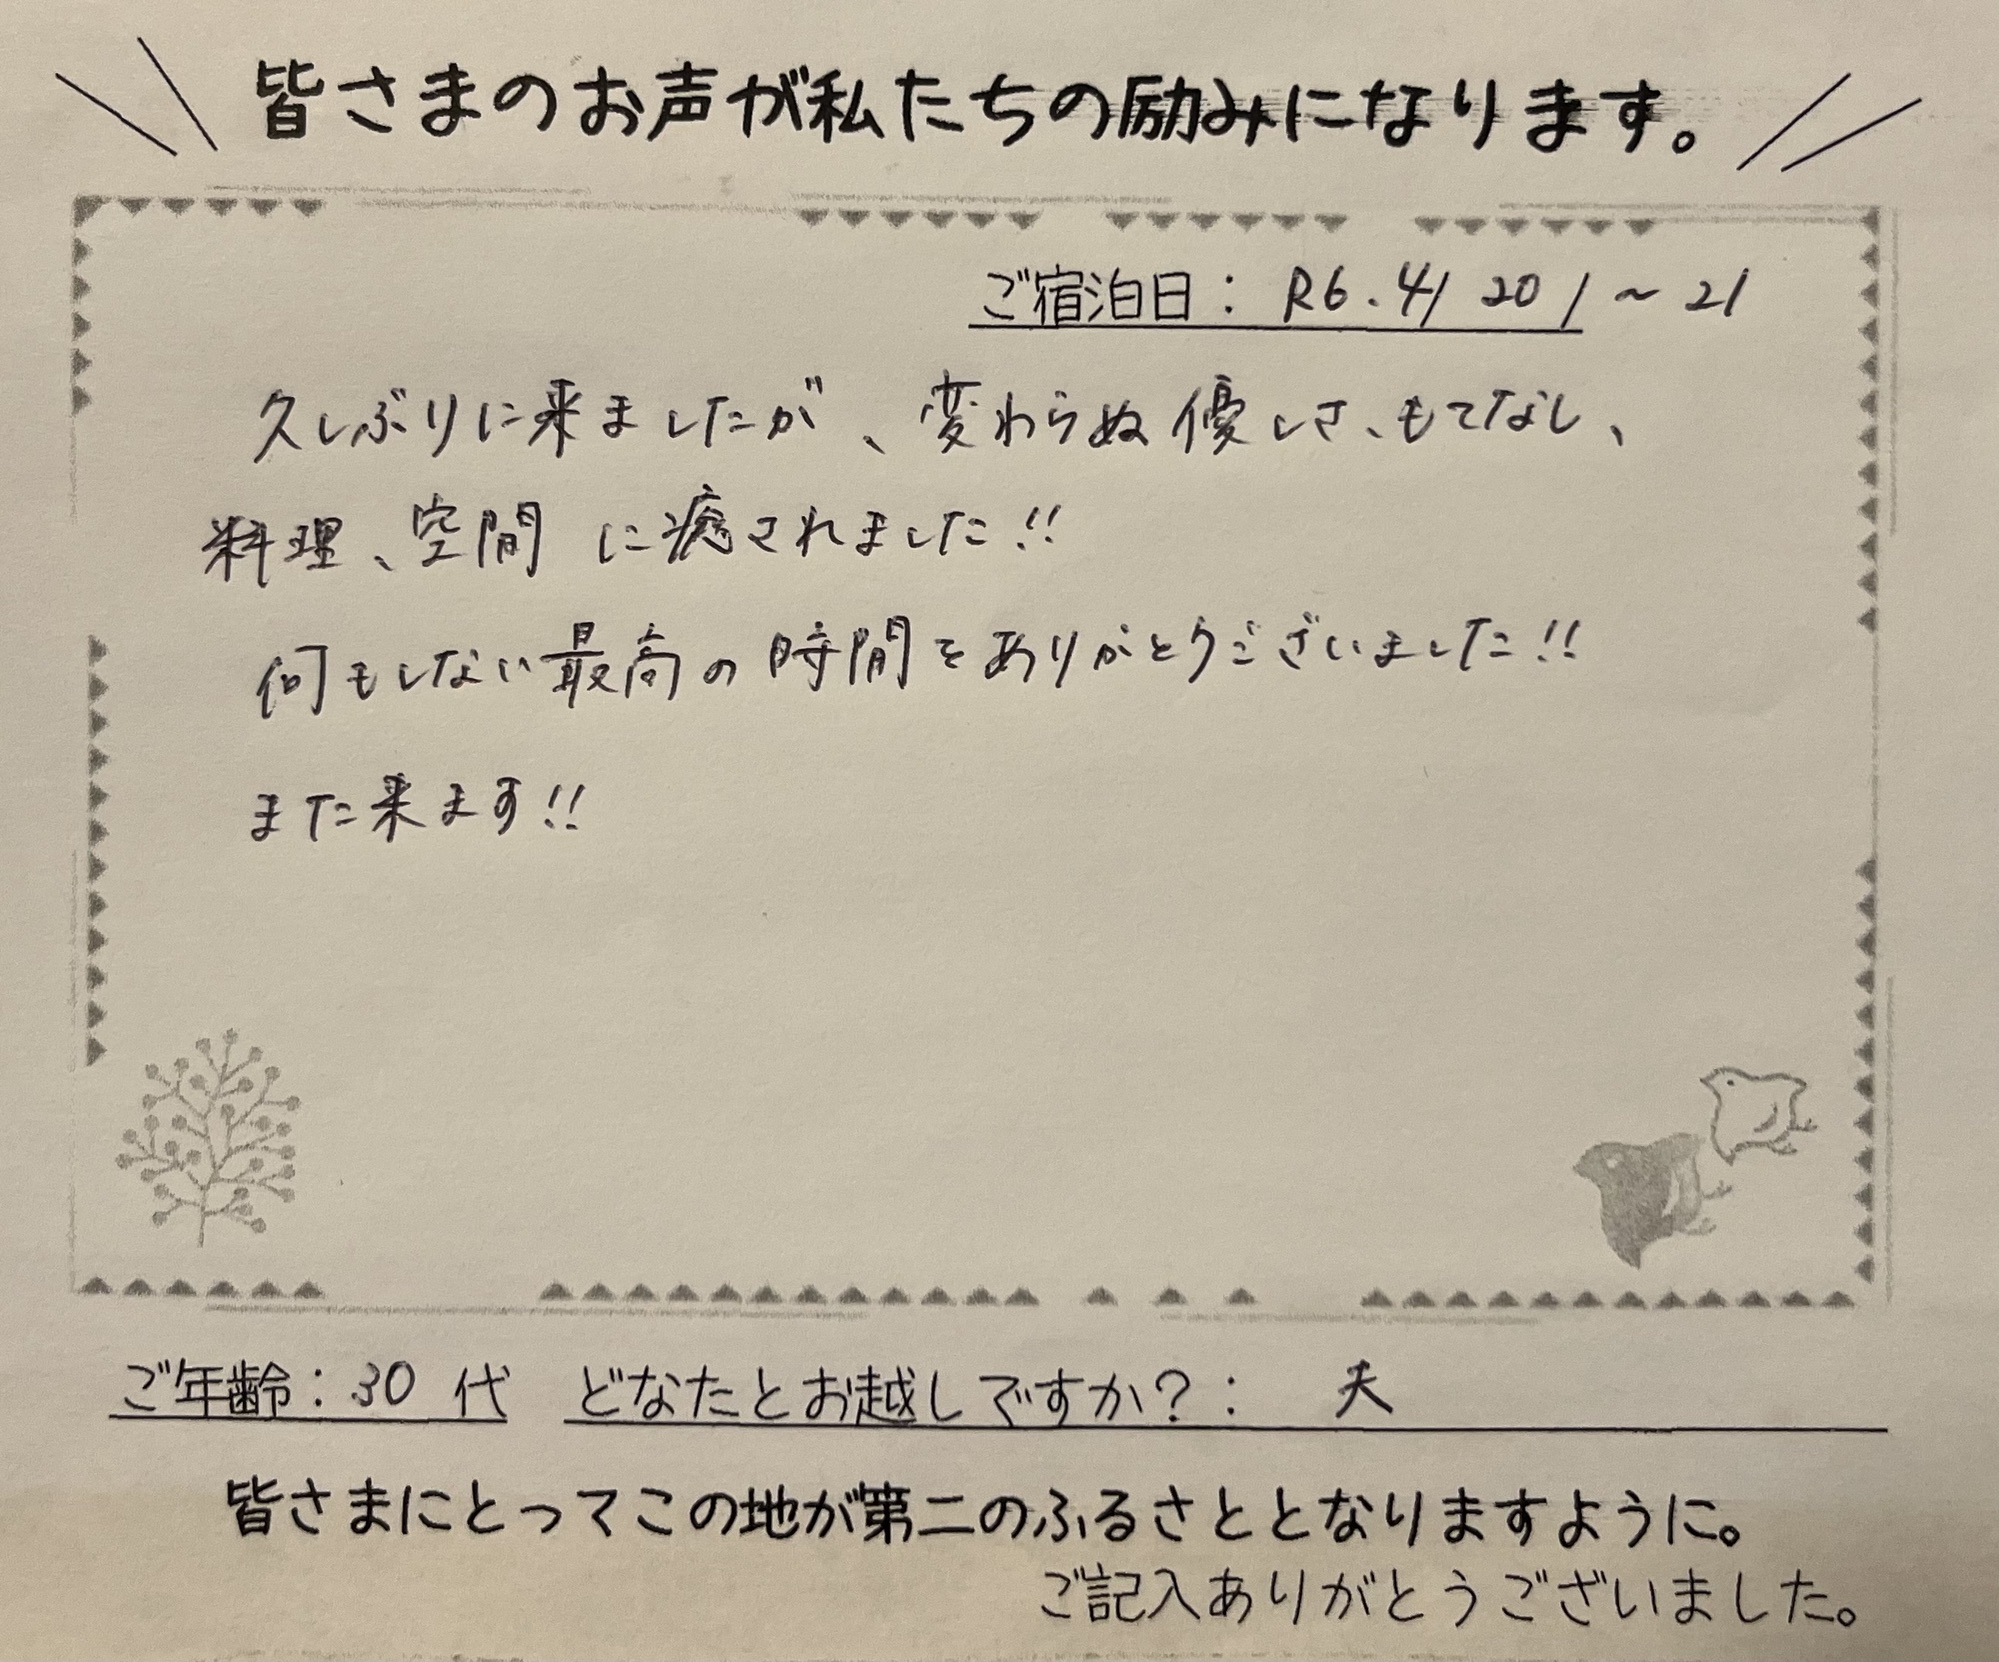 皆さまのお声が私たちの励みになります。
ご宿泊日： R6. 4/ 20 / ～ 21
久しぶりに来ましたが、変わらぬ優しさ、もてなし、
料理、空間 に癒されました!!
何もしない最高の時間をありがとうございました!!
また来ます!!
ご年齢：30 代 どなたとお越しですか？： 夫
皆さまにとってこの地が第二のふるさととなりますように。
ご記入ありがとうございました。